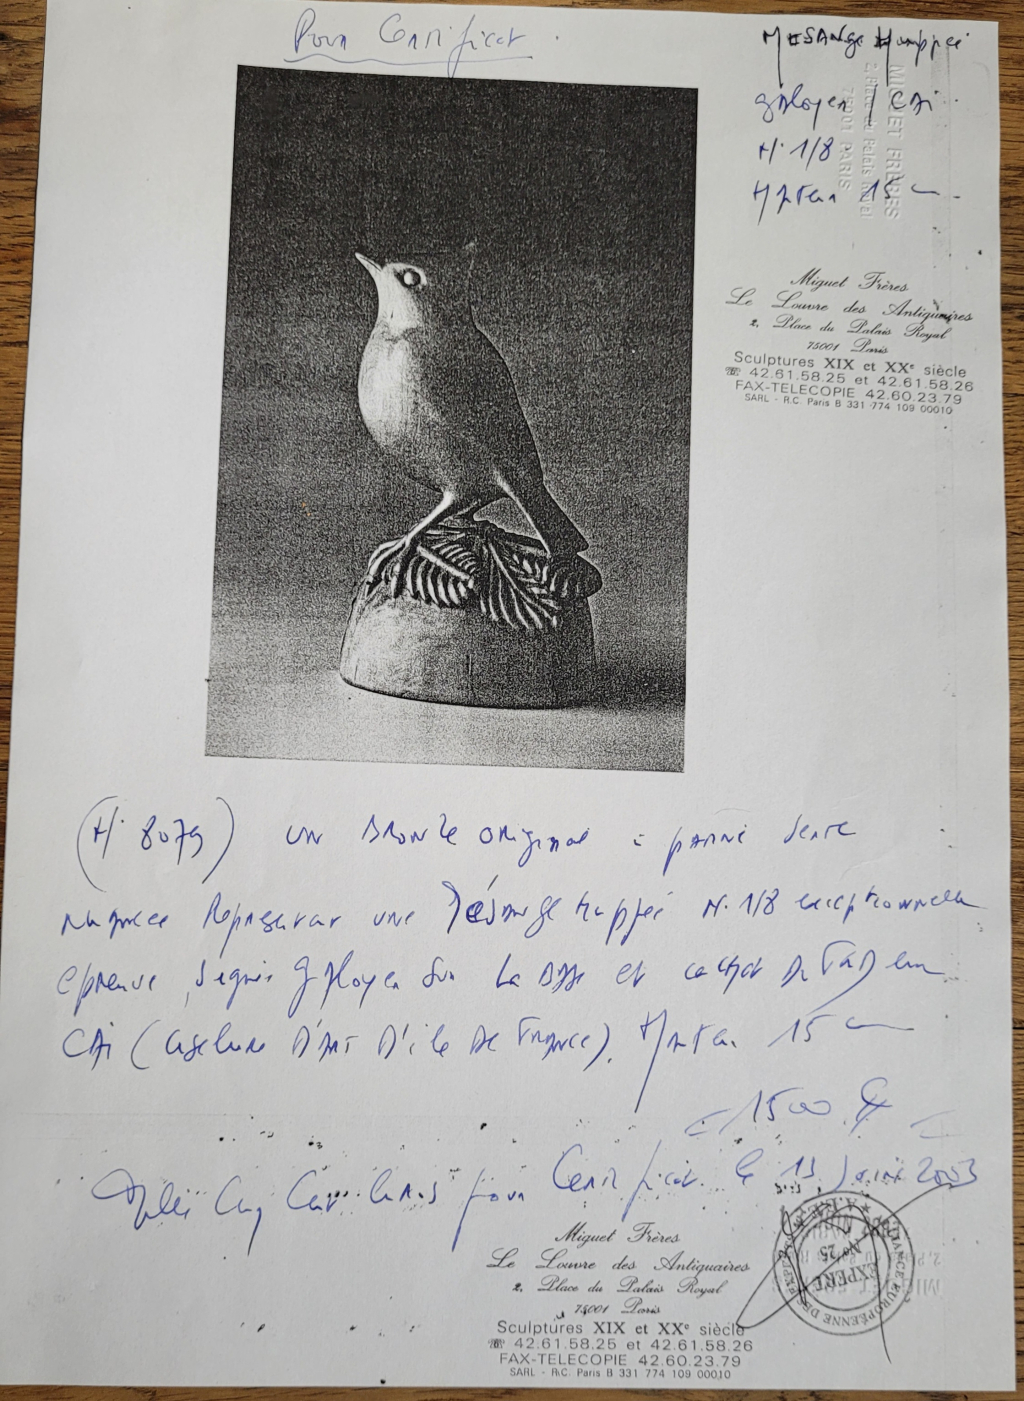 Pour Certificat.
MESANGE Huppée
CAI
N° 1/8
Hauteur 15 cm
MIQUET FRÈRES
2, Place du Palais Royal
75001 PARIS
Miquet Frères
Le Louvre des Antiquaires
2, Place du Palais Royal
75001 Paris
Sculptures XIX et XXe siècle
☎ 42.61.58.25 et 42.61.58.26
FAX-TELECOPIE 42.60.23.79
SARL - R.C. Paris B 331 774 109 00010
(N° 8079) un Bronze original à patine
nuancée Représentant une Mésange huppée N° 1/8 exceptionnelle
épreuve, signée sur la base et cachet
CAI (Ciselure D'Art D'ile De France). Hauteur 15 cm
= 1500 € =
Mille Cinq Cent Euros pour Certificat. le 13 2003
ALLIANCE EUROPÉENNE DES EXPERTS
No 25
EXPERT
Miquet Frères
Le Louvre des Antiquaires
2, Place du Palais Royal
75001 Paris
Sculptures XIX et XXe siècle
☎ 42.61.58.25 et 42.61.58.26
FAX-TELECOPIE 42.60.23.79
SARL - R.C. Paris B 331 774 109 00010